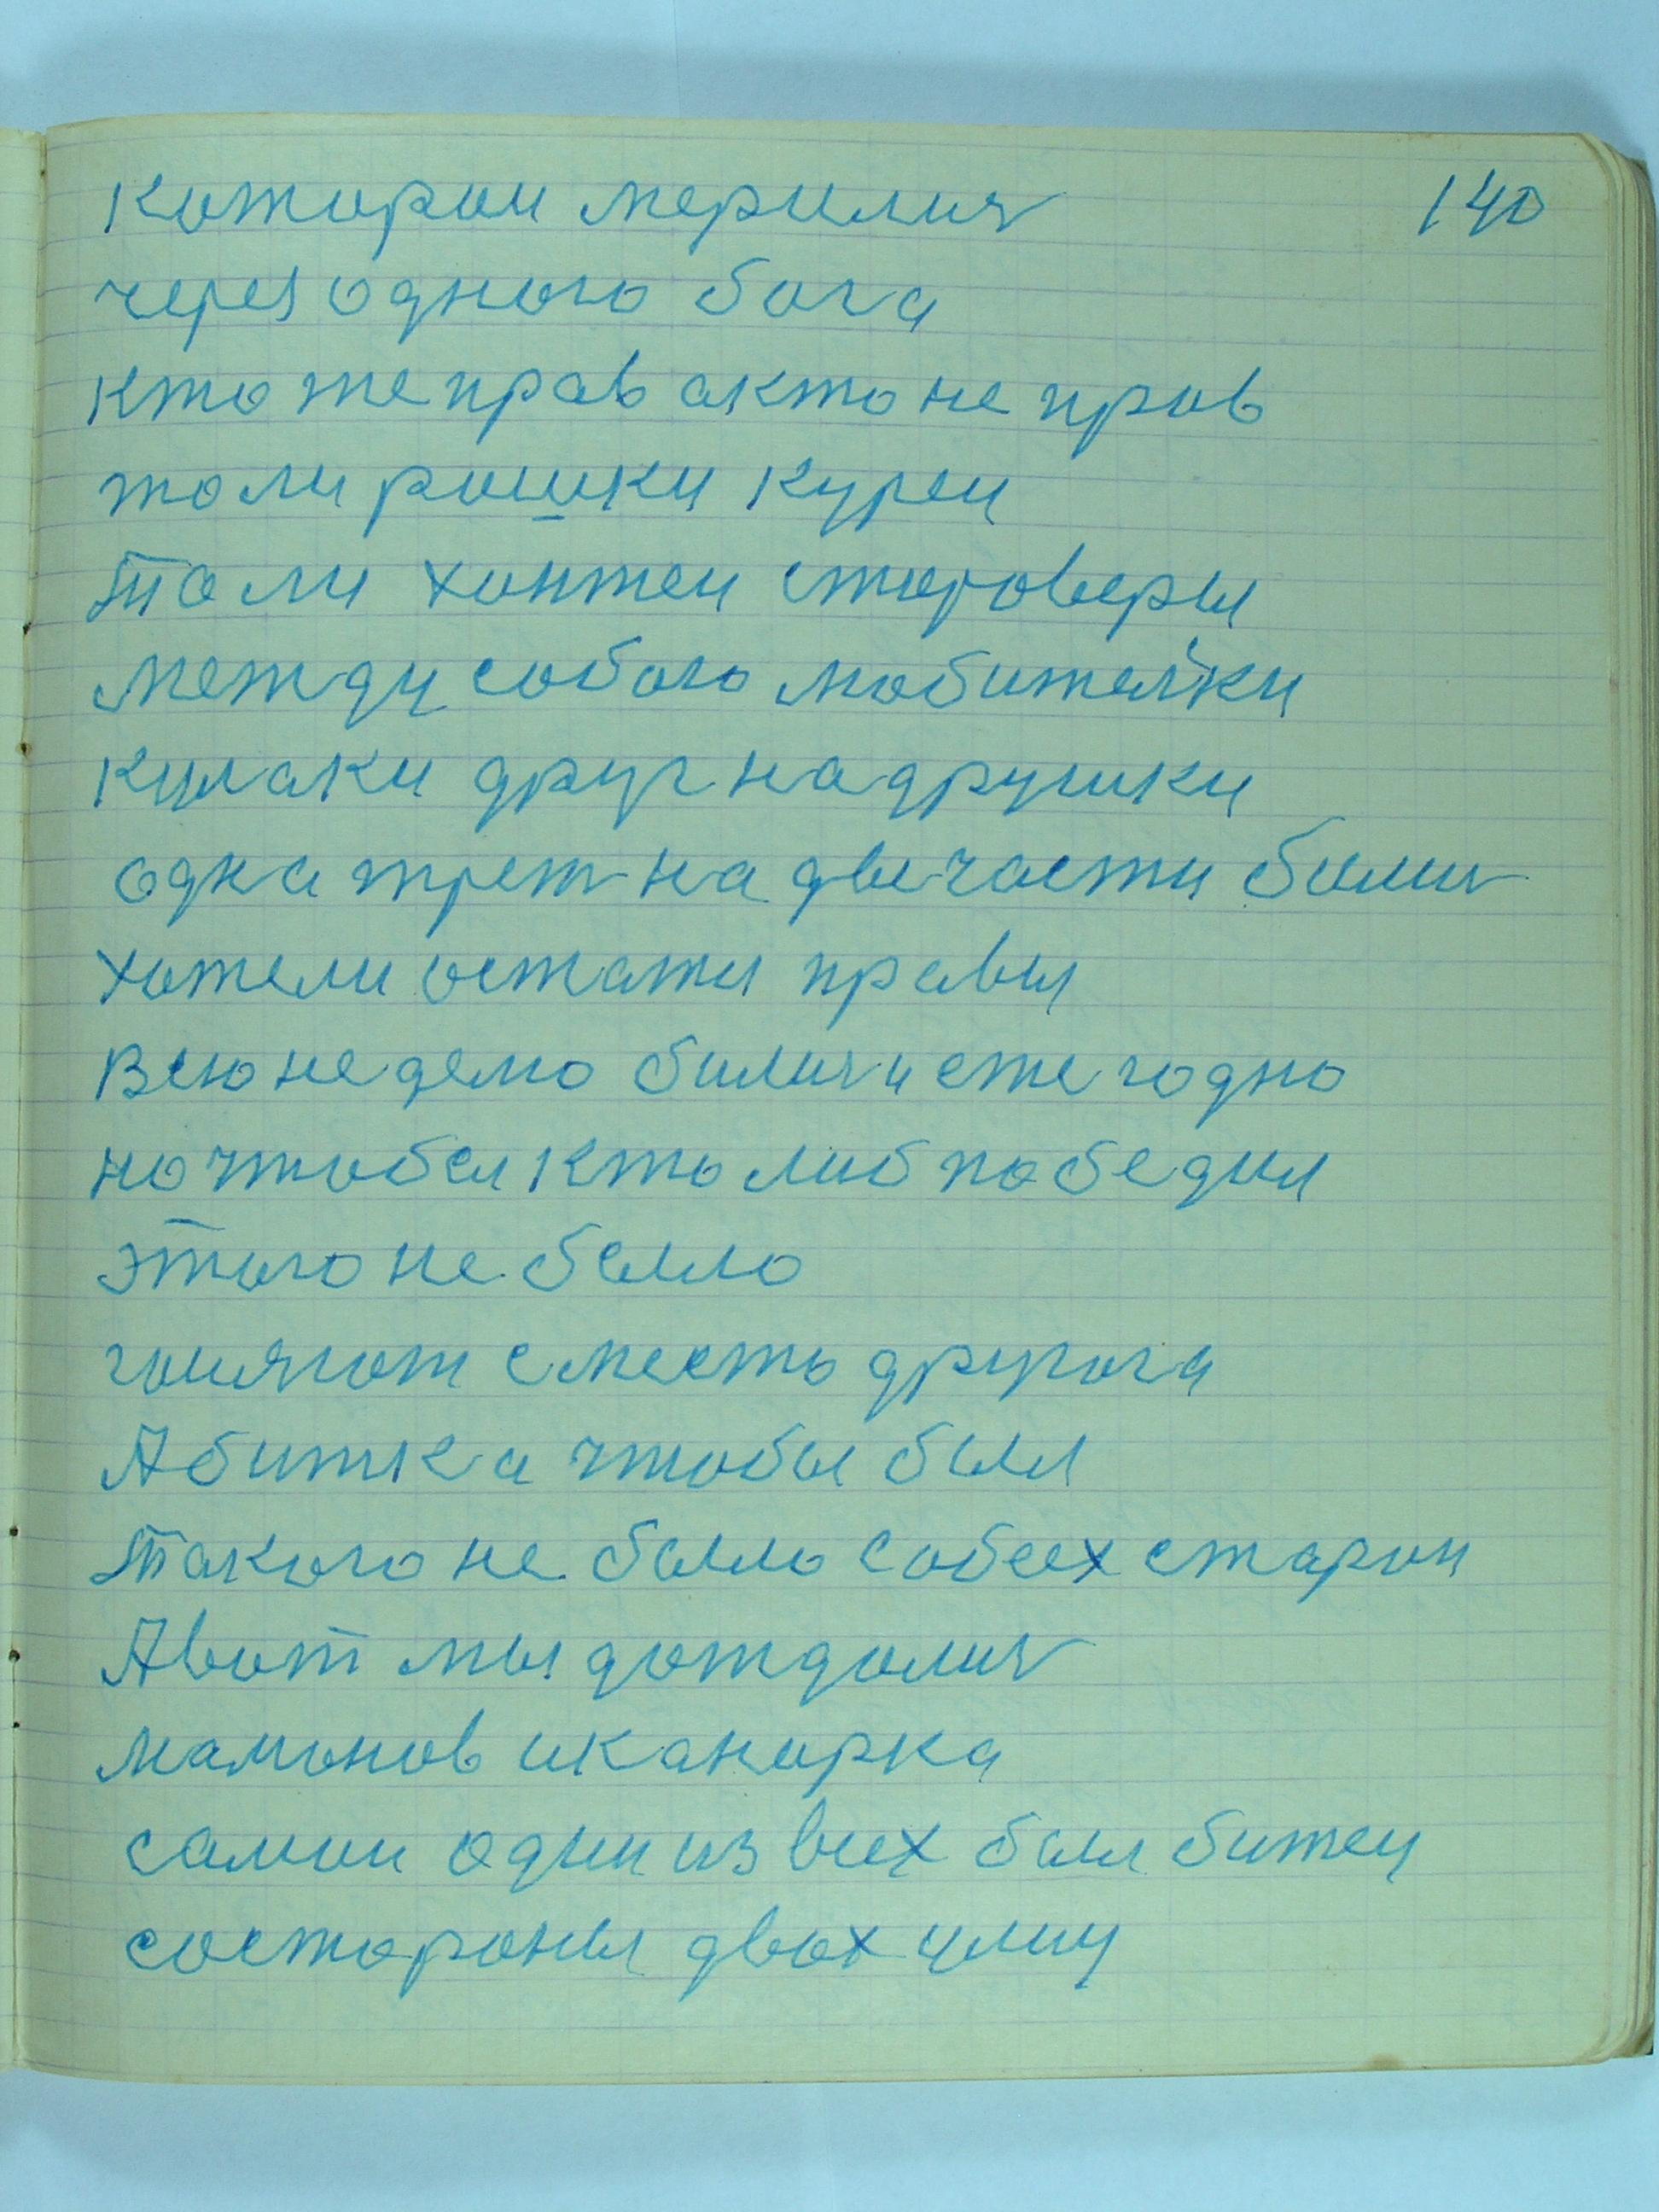 которои мерились 140
через одного бога
кто же прав а кто не прав
то ли рошки куреи
то ли хоптеи староверы
между собою любителки
кулаки друг на дружки
одна трет на две части бились
хотели остатся правы
всю неделю бились и ежегодно
но чтобы кто либ победил
этого не было
гоняют с место другога
А битка чтобы был
такого не было с обеех старон
А вот мы дождались
мамонов иканорка
самои один из всех был битец
со стороны двох улиц